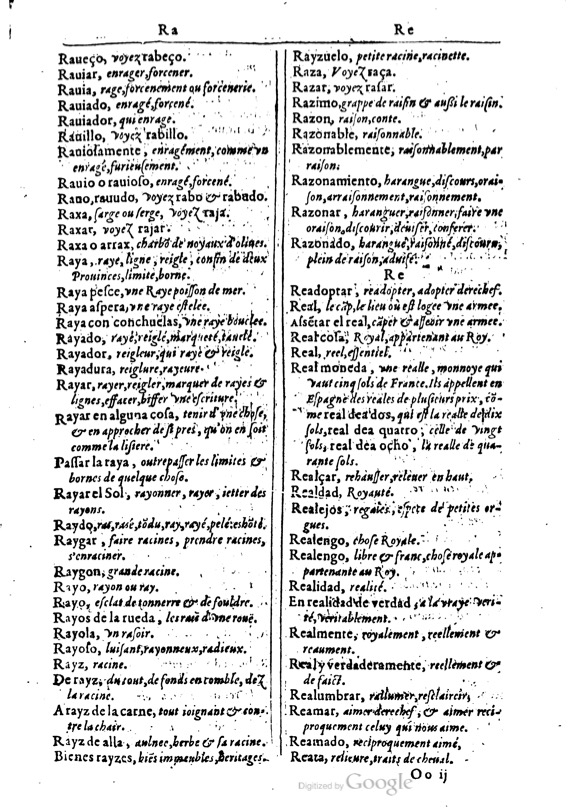 Ra
Raueço, voyez rabeço.
Rauiar, enrager, forcener.
Rauia, rage, forcenement ou forcenerie.
Rauiado, enragé, forcené.
Rauiador, qui enrage.
Rauillo, voyez rabillo.
Rauiosamente, enragément, comme vn
enragé, furieusement.
Rauio o rauioso, enragé, forcené.
Rauo, rauudo, voyez rabo & rabudo.
Raxa, sarge ou serge, voyez raja.
Raxar, voyez rajar.
Raxa o arrax, charbõ de noyaux d'oliues.
Raya, raye, ligne, reigle, confin de deux
Prouinces, limite, borne.
Raya pesce, vne Raye poisson de mer.
Raya aspera, vne raye estelée.
Raya con conchuelas, vne raye bouclee.
Rayado, rayé, reiglé, marqueté,
Rayador, reigleur, qui raye & reigle.
Rayadura, reiglure, rayeure.
Rayar, rayer, reigler, marquer de rayes &
lignes, effacer, biffer vne escriture.
Rayar en alguna cosa, tenir d'vne chose,
& en approcher de si pres, qu'on en soit
comme la lisiere.
Passar la raya, outrepasser les limites &
bornes de quelque chose.
Rayar el Sol, rayonner, rayer, ietter des
rayons.
Raydo, rai, rasé, tõdu, ray, rayé, pelé:
Raygar, faire racines, prendre racines,
s'enraciner.
Raygon, grande racine.
Rayo, rayon ou ray.
Rayo, esclat de tonnerre & de fouldre.
Rayos de la rueda, les rais d'vne rouë.
Rayola, vn rasoir.
Rayoso, luisant, rayonneux, radieux.
Rayz, racine.
De rayz, du tout, de fonds en comble, dez
la raciné.
A rayz de la carne, tout ioignant & con-
tre la chair.
Rayz de alla, aulnee, herbe & sa racine.
Bienes rayzes, biẽs immeubles, heritages.
Re
Rayzuelo, petite racine, racinette.
Raza, Voyez raça.
Razar, voyez rasar.
Razimo, grappe de raisin & aussi le raisin.
Razon, raison, conte.
Razonable, raisonnable.
Razonablemente, raisonnablement, par
raison.
Razonamiento, harangue, discours, orai-
son, arraisonnement, raisonnement.
Razonar, haranguer, raisonner, faire vne
oraison, discourir, deuiser, conferer.
Razonado, harangué, raisonné, discouru,
plein de raison, aduisé.
Re
Readoptar, readopter, adopter derechef.
Real, le cãp, le lieu où est logee vne armee.
Assẽtar el real, cãper & asseoir vne armee.
Real cosa, Royal, appartenant au Roy.
Real, reel, essentiel.
Real moneda, vne realle, monnoye qui
vaut cinq sols de France. Ils appellent en
Espagne des reales de plusieurs prix, cõ-
me real de a dos, qui est la realle de dix
sols, real de a quatro, celle de vingt
sols, real de a ocho, la realle de qua-
rante sols.
Realçar, rehausser, releuer en haut.
Realdad, Royauté.
Realejos, regales, espece de petites or-
gues.
Realengo, chose Royale.
Realengo, libre & franc, chose royale ap-
partenante au Roy.
Realidad, realité.
En realidad de verdad, à la vraye veri-
té, veritablement.
Realmente, royalement, reellement &
reaument.
Real y verdaderamente, reellement &
de faict.
Realumbrar, rallumer, resclaircir.
Reamar, aimer derechef, & aimer reci-
proquement celuy qui nous aime.
Reamado, reciproquement aimé.
Reata, relieure, traits de cheual.
Oo ij
Digitized by Google